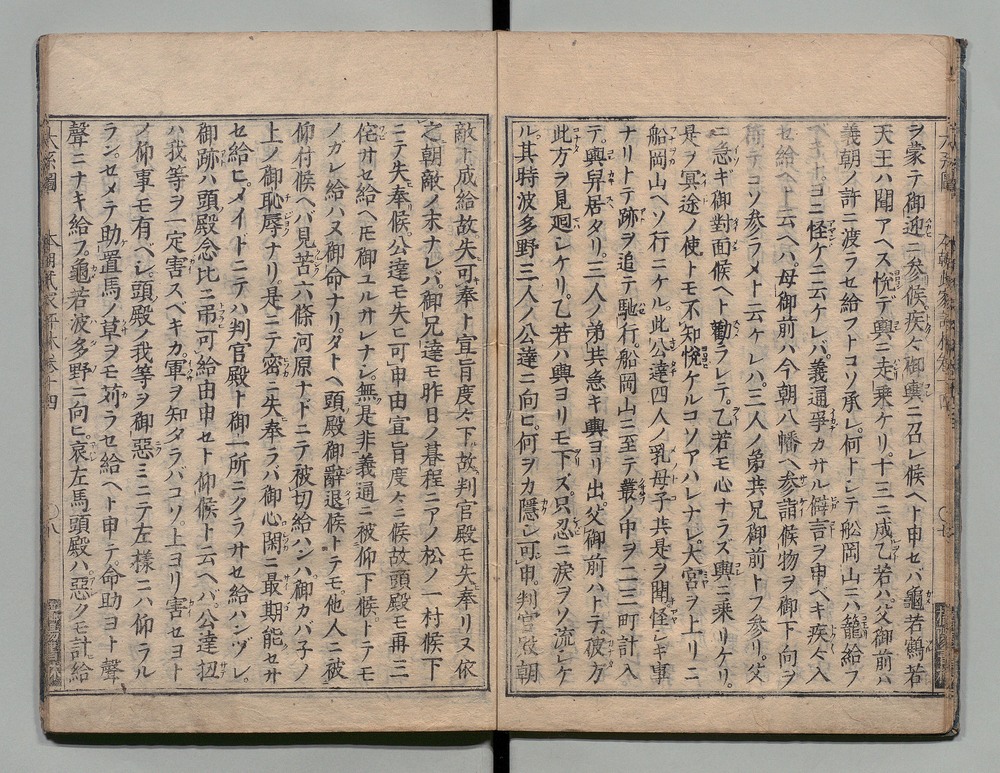 ヲ蒙テ御迎ニ参候疾々御輿ニ召レ候ヘト申セバ龜若鶴若
天王ハ聞アヘス悦デ輿ニ走乗ケリ。十三ニ成乙若ハ父御前ハ
義朝ノ許ニ渡ラセ給フトコソ承レ。何トシテ船岡山ニハ籠給フ
ヘキトヨニ怪ケニ云ケレバ。義通爭カサル僻言ヲ申ヘキ疾々入
セ給ヘト云ヘバ。母御前ハ今朝八幡ヘ参詣候物ヲ御下向ヲ
待テコソ参ラメト云ケレハ。三人ノ弟共兄御前トフ参リ。父
ニ急ギ御對面候ヘト勸ラレテ。乙若モ心ナラズ輿ニ乗リケリ。
是ヲ冥途ノ使トモ不知悦ケルコソアハレナレ。大宮ヲ上リニ
船岡山ヘソ行ニケル。此公達四人ノ乳母子共是ヲ聞怪シキ事
ナリトテ跡ヲ追テ馳行。船岡山ニ至テ叢ノ中ヲ二三町計入
テ。輿舁居タリ。三人ノ弟共急キ輿ヨリ出。父御前ハトテ。彼方
此方ヲ見廻シケリ。乙若ハ輿ヨリモ下ズ。只忍ニ涙ヲソ流シケ
ル。其時波多野三人ノ公達ニ向ヒ。何ヲカ隠シ可申。判官殿朝
敵ト成給故失可奉ト宣旨度々下故判官殿モ失奉リヌ依
之朝敵ノ末ナレバ。御兄達モ昨日ノ暮程ニアノ松ノ一村候下
ニテ失奉候。公達モ失ヒ可申由宣旨度々ニ候故頭殿モ再三
侘サセ給ヘ𪜈御ユルサレナシ。無是非義通ニ被仰下候トテモ
ノガレ給ハヌ御命ナリ。タトヘ頭殿御辭退候トテモ。他人ニ被
仰付候ヘバ見苦六條河原ナドニテ被切給ハンハ。御カバ子ノ
上ノ御恥辱ナリ。是ニテ密ニ失奉ラバ御心閑ニ最期能セサ
セ給ヒ。メイトニテハ判官殿ト御一所ニクラサセ給ハンヅレ。
御跡ハ頭殿念比ニ吊可給由申セト仰候ト云ヘバ。公達扨
ハ我等ヲ一定害スベキカ。軍ヲ知タラバコソ。上ヨリ害セヨト
ノ仰事モ有ベシ。頭殿ノ我等ヲ御惡ミニテ左様ニハ仰ラル
ラン。セメテ助置馬ノ草ヲモ苅ラセ給ヘト申テ。命助ヨト聲
聲ニナキ給フ。龜若波多野ニ向ヒ。哀左馬頭殿ハ惡クモ計給